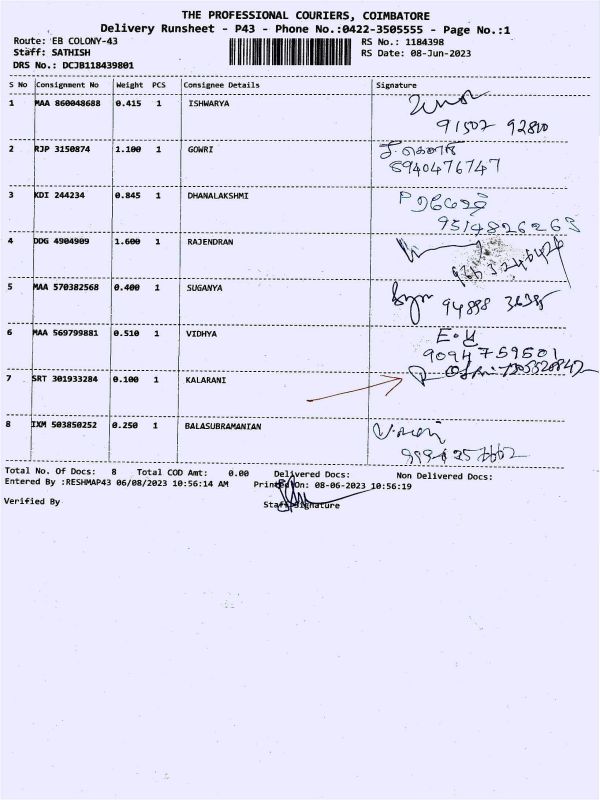 THE PROFESSIONAL COURIERS, COIMBATORE
Delivery Runsheet - P43 - Phone No.:0422-3505555 - Page No.:1
Route: EB COLONY-43 RS No.: 1184398
Staff: SATHISH RS Date: 08-Jun-2023
DRS No.: DCJB118439801
S No Consignment No Weight PCS Consignee Details Signature
1 MAA 860048688 0.415 1 ISHWARYA
91502 92810
2 RJP 3150874 1.100 1 GOWRI
8940476747
3 KDI 244234 0.845 1 DHANALAKSHMI
9514826263
4 DDG 4904909 1.600 1 RAJENDRAN
5 MAA 570382568 0.400 1 SUGANYA
94888 36385
6 MAA 569799881 0.510 1 VIDHYA
9094759501
7 SRT 301933284 0.100 1 KALARANI
8 IXM 503850252 0.250 1 BALASUBRAMANIAN
Total No. Of Docs: 8 Total COD Amt: 0.00 Delivered Docs: Non Delivered Docs:
Entered By :RESHMAP43 06/08/2023 10:56:14 AM Printed On: 08-06-2023 10:56:19
Verified By Staff Signature